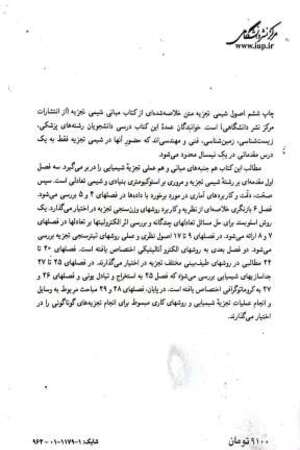 مرکز نشر دانشگاهی
www.iup.ir
چاپ ششم اصول شیمی تجزیه متن خلاصه‌شده‌ای از کتاب مبانی شیمی تجزیه (از انتشارات
مرکز نشر دانشگاهی) است. خوانندگان عمدهٔ این کتاب درسی دانشجویان رشته‌های پزشکی،
زیست‌شناسی، زمین‌شناسی، فنی و مهندسی‌اند که حضور آنها در شیمی تجزیه فقط به یک
درس مقدماتی در یک نیمسال محدود می‌شود.
مطالب این کتاب هم جنبه‌های مبانی و هم عملی تجزیهٔ شیمیایی را در بر می‌گیرد. سه فصل
اول مقدمه‌ای بر رشتهٔ شیمی تجزیه و مروری بر استوکیومتری بنیادی و شیمی تعادلی است. سپس
صحت، دقت، و کاربردهای آماری در مورد برخورد با داده‌ها در فصلهای ۴ و ۵ بررسی می‌شود.
فصل ۶ بازنگری خلاصه‌ای از نظریه و کاربرد روشهای وزن‌سنجی تجزیه در اختیار می‌گذارد. یک
روش اسلوبمند برای حل مسائل تعادلهای چندگانه و بررسی اثر الکترولیتها بر تعادلها در فصلهای
۷ و ۸ ارائه می‌شود. در فصلهای ۹ تا ۱۷ اصول نظری و عملی روشهای تیترسنجی تجزیه بررسی
می‌شود. دو فصل بعدی به روشهای الکتروآنالیتیکی اختصاص یافته است. فصلهای ۲۰ تا
۲۴ مطالبی در روشهای طیف‌بینی مختلف تجزیه در اختیار می‌گذارند. در فصلهای ۲۵ تا ۲۷
جداسازیهای شیمیایی بررسی می‌شود که فصل ۲۵ به استخراج و تبادل یونی و فصلهای ۲۶ و
۲۷ به کروماتوگرافی اختصاص یافته است. در پایان، فصلهای ۲۸ و ۲۹ مباحث مربوط به وسایل
و انجام عملیات تجزیهٔ شیمیایی و روشهای کاری مبسوط برای انجام تجزیه‌های گوناگونی را در
اختیار می‌گذارند.
۹۱۰۰ تومان
شابک: ۱-۱۱۷۹-۰۱-۹۶۴